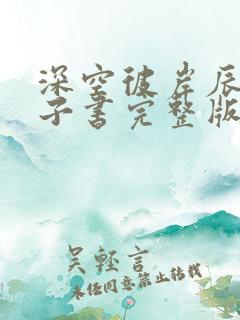 深空彼岸辰
子书完整版
吴轻言
未经同意禁止转载